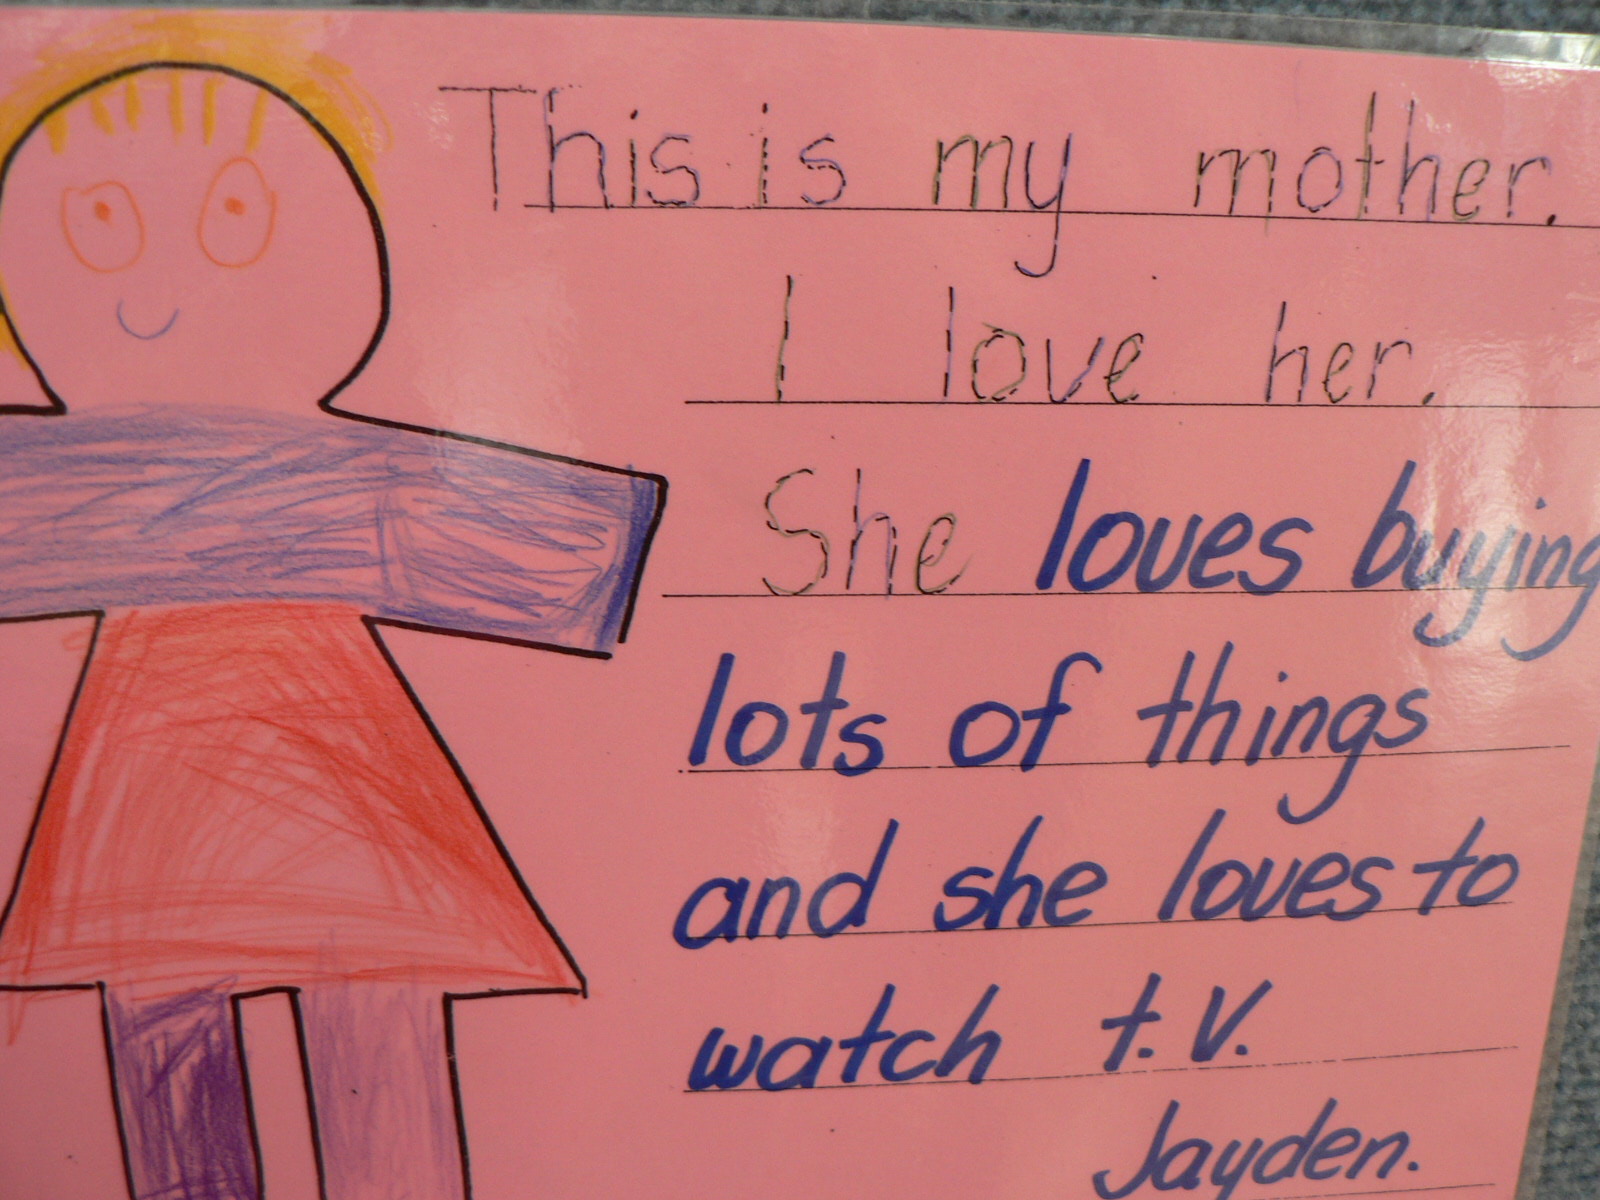 This is my mother.
I love her.
She loves buying
lots of things
and she loves to
watch t.V.
Jayden.